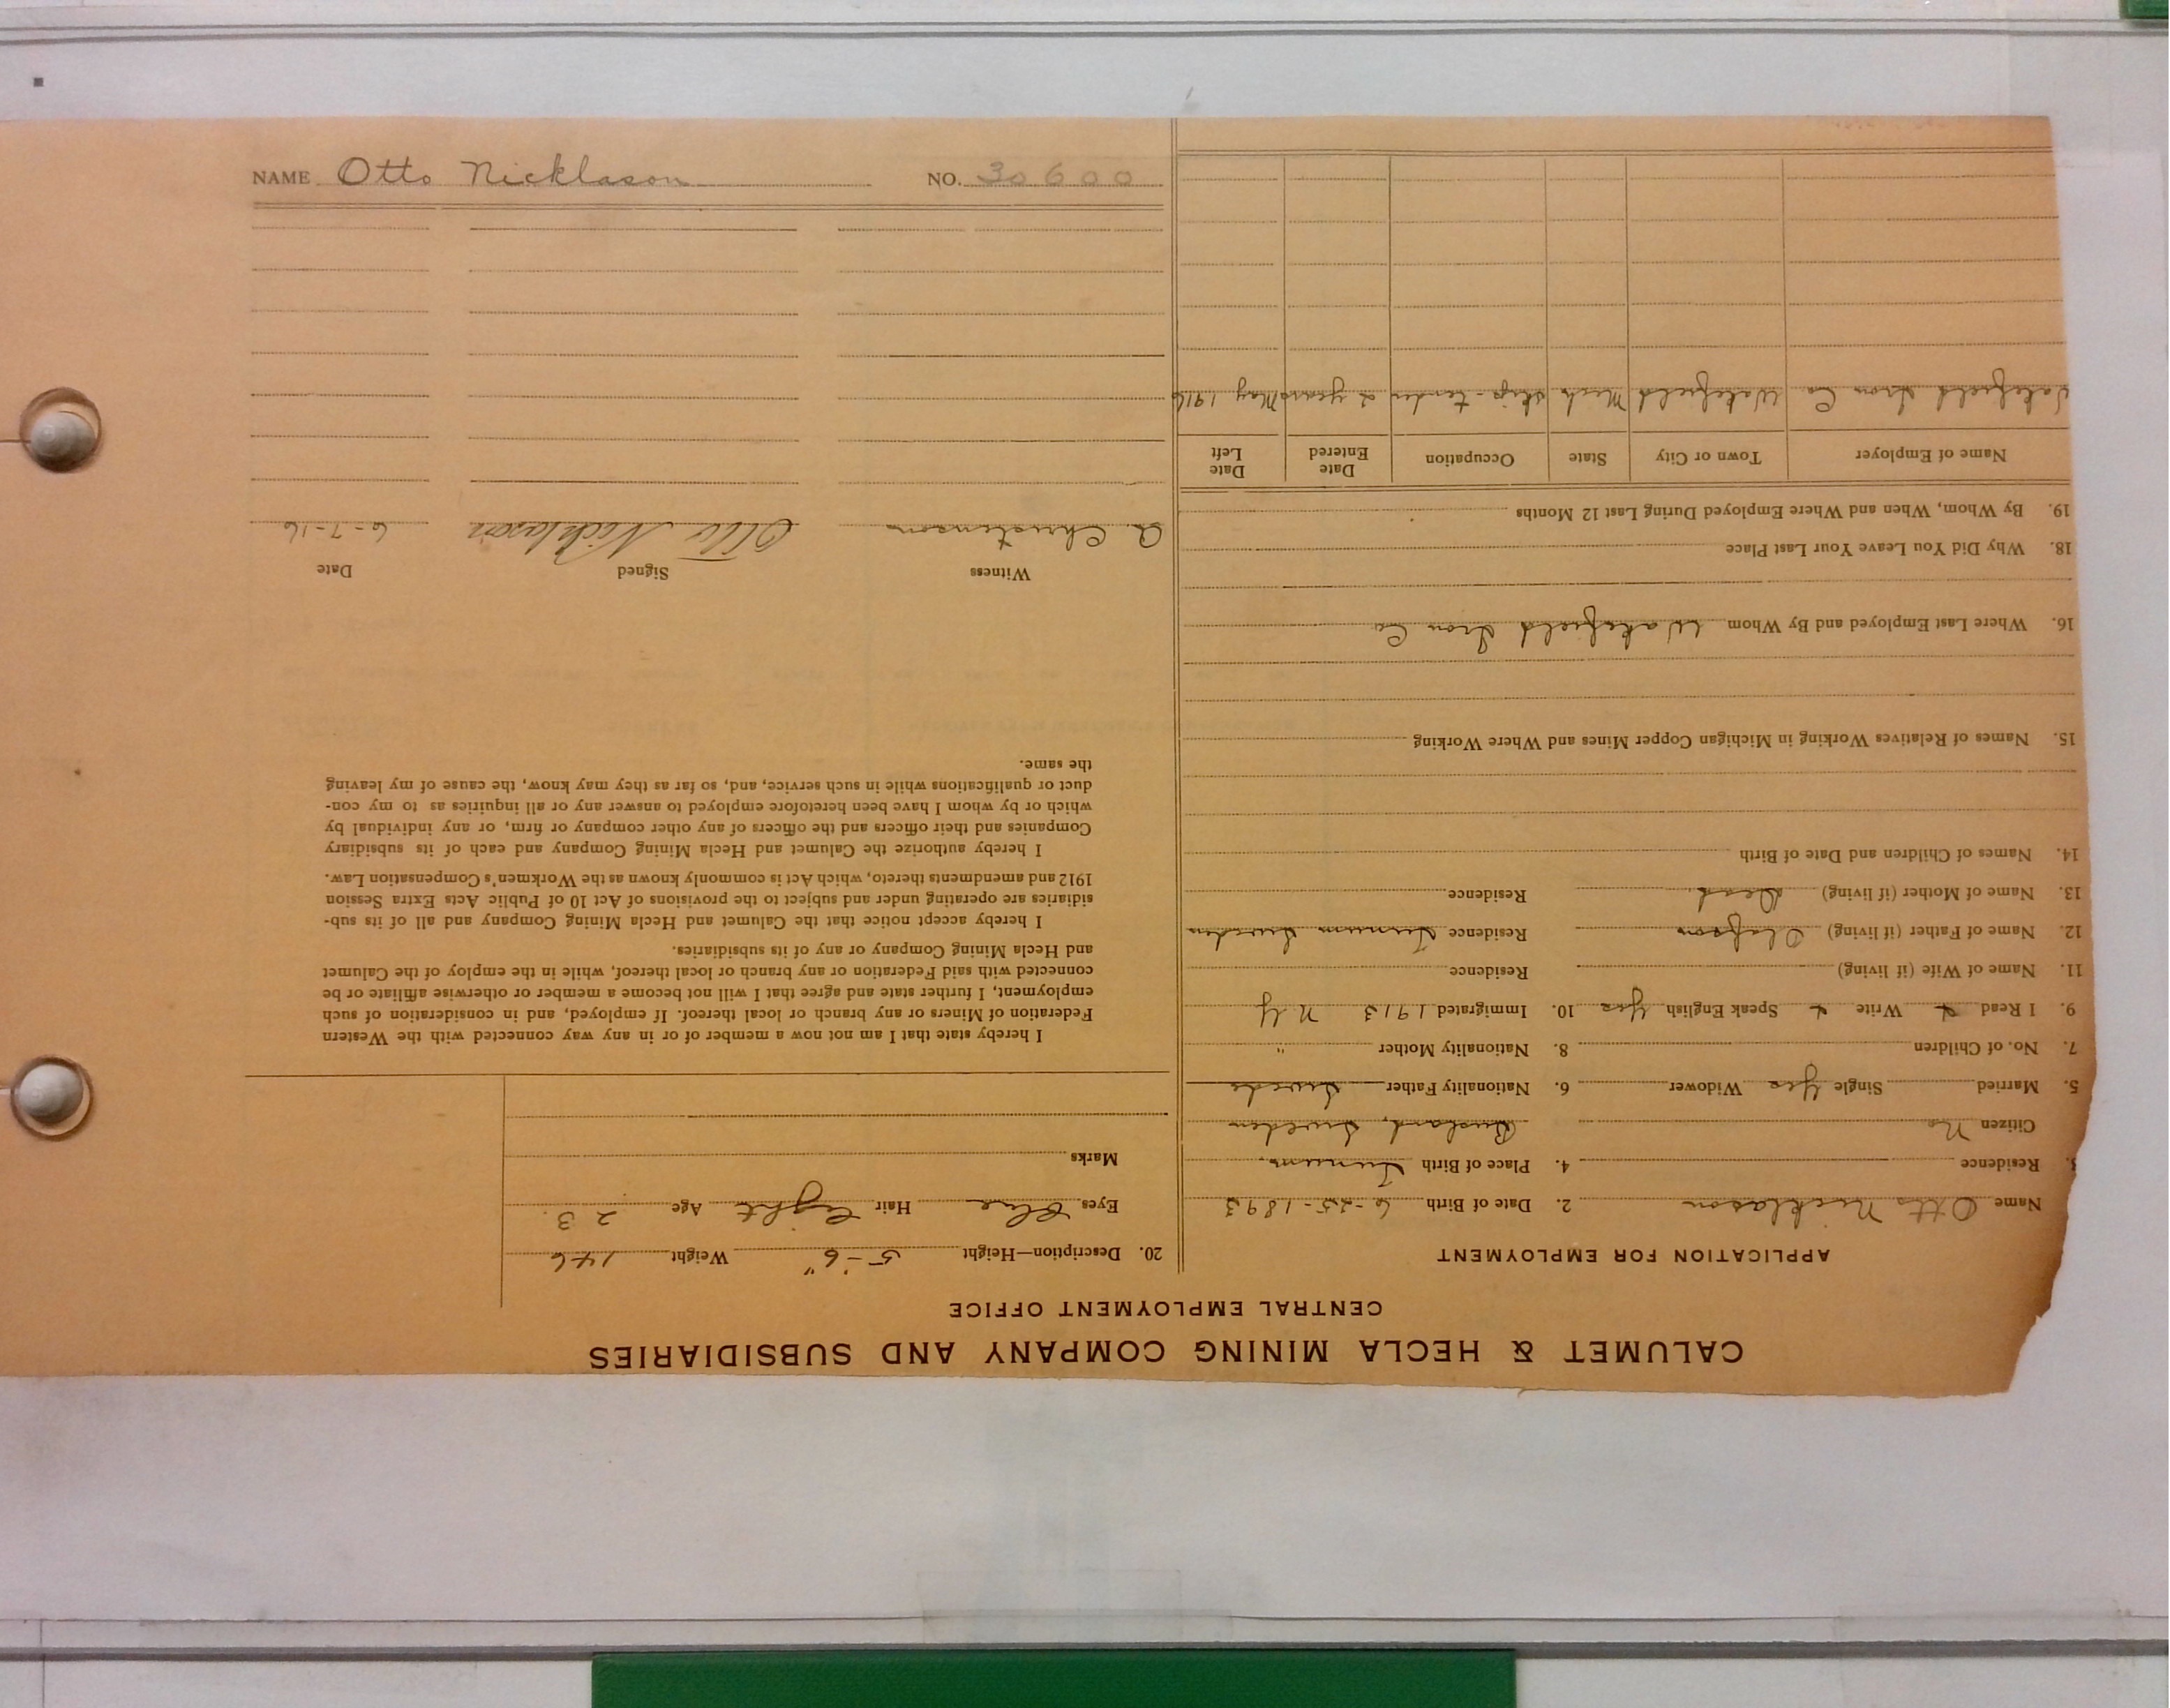 CALUMET & HECLA MINING COMPANY AND SUBSIDIARIES
CENTRAL EMPLOYMENT OFFICE
APPLICATION FOR EMPLOYMENT
Name Otto Nicklason 2. Date of Birth 6-25-1893
3. Residence 4. Place of Birth
Citizen No Sweden
5. Married Single Yes Widower 6. Nationality Father Swede
7. No. of Children 8. Nationality Mother "
9. I Read Write Speak English Yes 10. Immigrated 1913 N.Y
11. Name of Wife (if living) Residence
12. Name of Father (if living) Olafson Residence Sweden
13. Name of Mother (if living) Dead. Residence
14. Names of Children and Date of Birth
15. Names of Relatives Working in Michigan Copper Mines and Where Working
16. Where Last Employed and By Whom Wakefield Iron Co
18. Why Did You Leave Your Last Place
19. By Whom, When and Where Employed During Last 12 Months
Name of Employer Town or City State Occupation Date Entered Date Left
Wakefield Iron Co Wakefield Mich skip-tender 2 years May 1916
20. Description—Height 5-6" Weight 146
Eyes Blue Hair Light Age 23.
Marks
I hereby state that I am not now a member of or in any way connected with the Western
Federation of Miners or any branch or local thereof. If employed, and in consideration of such
employment, I further state and agree that I will not become a member or otherwise affiliate or be
connected with said Federation or any branch or local thereof, while in the employ of the Calumet
and Hecla Mining Company or any of its subsidiaries.
I hereby accept notice that the Calumet and Hecla Mining Company and all of its sub-
sidiaries are operating under and subject to the provisions of Act 10 of Public Acts Extra Session
1912 and amendments thereto, which Act is commonly known as the Workmen's Compensation Law.
I hereby authorize the Calumet and Hecla Mining Company and each of its subsidiary
Companies and their officers and the officers of any other company or firm, or any individual by
which or by whom I have been heretofore employed to answer any or all inquiries as to my con-
duct or qualifications while in such service, and, so far as they may know, the cause of my leaving
the same.
Witness Signed Date
A. Christenson Otto Nicklason 6-7-16
NAME Otto Nicklason NO. 30600